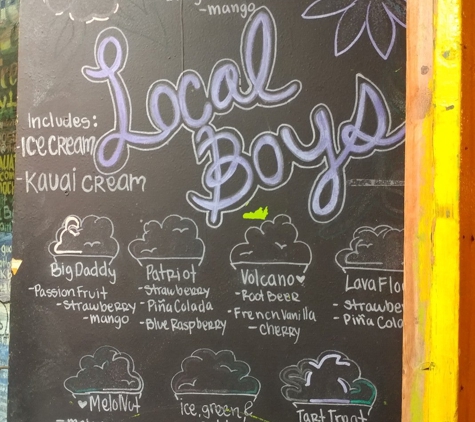 -mango
Local
Boys
Includes:
-Ice cream
-Kauai cream
Big Daddy
-Passion Fruit
-Strawberry
-mango
Patriot
-Strawberry
-Piña Colada
-Blue Raspberry
Volcano
-Root Beer
-French Vanilla
-Cherry
Lava Flo
-Strawbe
-Piña Cola
MeloNut
ice, green &
Tart Troat